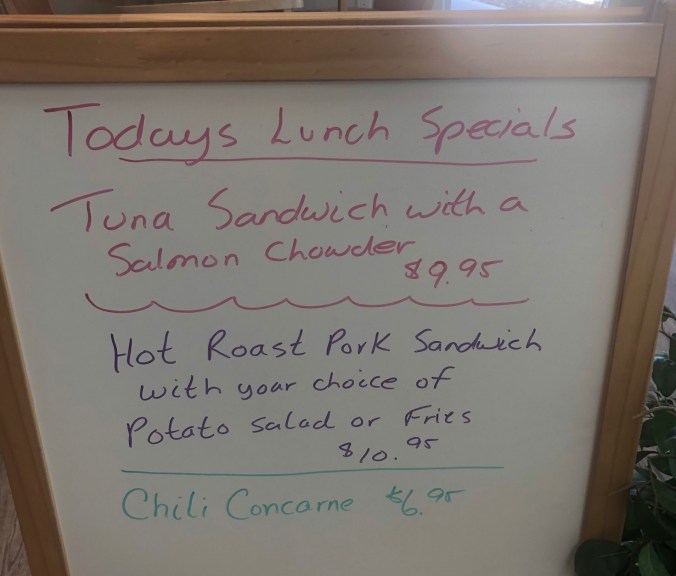 Todays Lunch Specials
Tuna Sandwich with a
Salmon Chowder
$9.95
Hot Roast Pork Sandwich
with your choice of
Potato Salad or Fries
$10.95
Chili Concarne $6.95